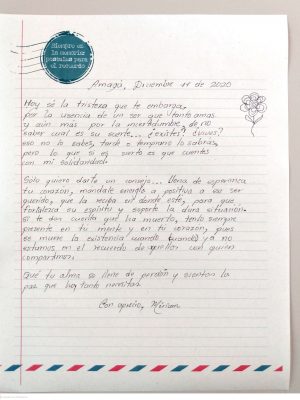 Siempre en
la memoria:
postales para
el recuerdo
Amagá, Diciembre 14 de 2020
Hoy sé la tristeza que te embarga,
por la usencia de un ser que tanto amas
y aún más por la incertidumbre, de no
saber cual es su suerte... ¿existes? ¿vives?
eso no lo sabes, tarde o temprano lo sabrás,
pero lo que si es cierto es que cuentas
con mi solidaridad.
Solo quiero darte un consejo... llena de esperanza
tu corazón, mandale energía positiva a ese ser
querido, que la reciba en donde esté, para que
fortalezca su espíritu y soporte la dura situación.
Si te dan cuenta que ha muerto, tenlo siempre
presente en tu mente y en tu corazón, pues
se muere la existencia cuando ya no
estamos en el recuerdo de aquellos con quien
compartimos.
Qué tu alma se llene de perdón y sientas la
paz que hoy tanto necesitas.
Con aprecio, Miriam